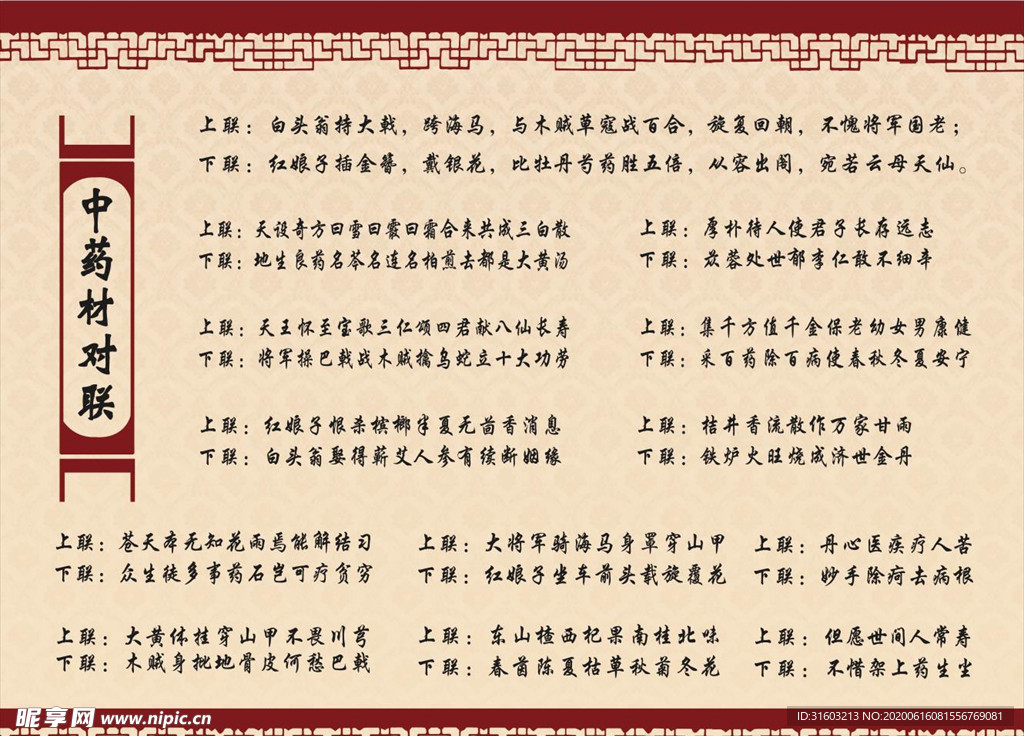 中药材对联
上联：白头翁持大戟，跨海马，与木贼草寇战百合，旋复回朝，不愧将军国老；
下联：红娘子插金簪，戴银花，比牡丹芍药胜五倍，从容出阁，宛若云母天仙。
上联：天设奇方曰雪曰霰曰霜合来共成三白散
下联：地生良药名芩名连名柏煎去都是大黄汤
上联：厚朴待人使君子长存远志
下联：苁蓉处世郁李仁敢不细辛
上联：天王怀至宝歌三仁颂四君献八仙长寿
下联：将军操巴戟战木贼擒乌蛇立十大功劳
上联：集千方值千金保老幼女男康健
下联：采百药除百病使春秋冬夏安宁
上联：红娘子恨杀槟榔半夏无茴香消息
下联：白头翁娶得蕲艾人参有续断姻缘
上联：桔井香流散作万家甘雨
下联：铁炉火旺烧成济世金丹
上联：苍天本无知花雨焉能解结习
下联：众生徒多事药石岂可疗贫穷
上联：大将军骑海马身罩穿山甲
下联：红娘子坐车前头载旋覆花
上联：丹心医疾疗人苦
下联：妙手除疴去病根
上联：大黄体挂穿山甲不畏川芎
下联：木贼身批地骨皮何愁巴戟
上联：东山楂西杞果南桂北味
下联：春茵陈夏枯草秋菊冬花
上联：但愿世间人常寿
下联：不惜架上药生尘
昵享网 www.nipic.cn
ID:31603213 NO:20200616081556769081